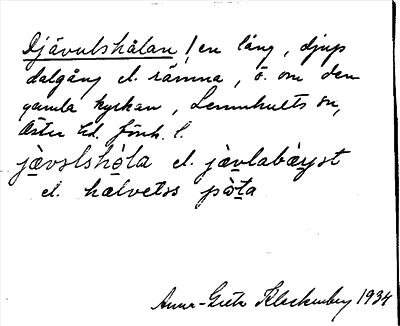 Djävulshålan / en lång, djup
dalgång el. rämna, ö. om den
gamla kyrkan, Lennhults sn,
Öster hd. förh. l.
jävslshòla el. jàvlabàyst
el. hælvetss pòta
Anna-Greta Klackenberg 1934